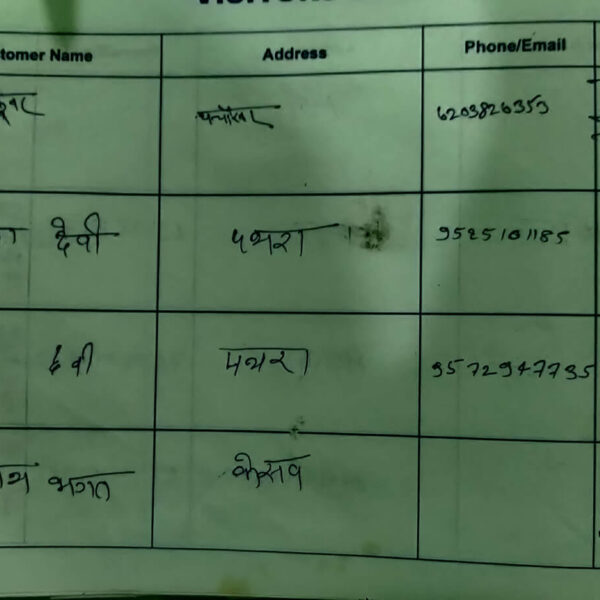 tomer Name Address Phone/Email
6203826353
देवी पथरा 9525101185
देवी पथरा 9572947735
भगत केसव